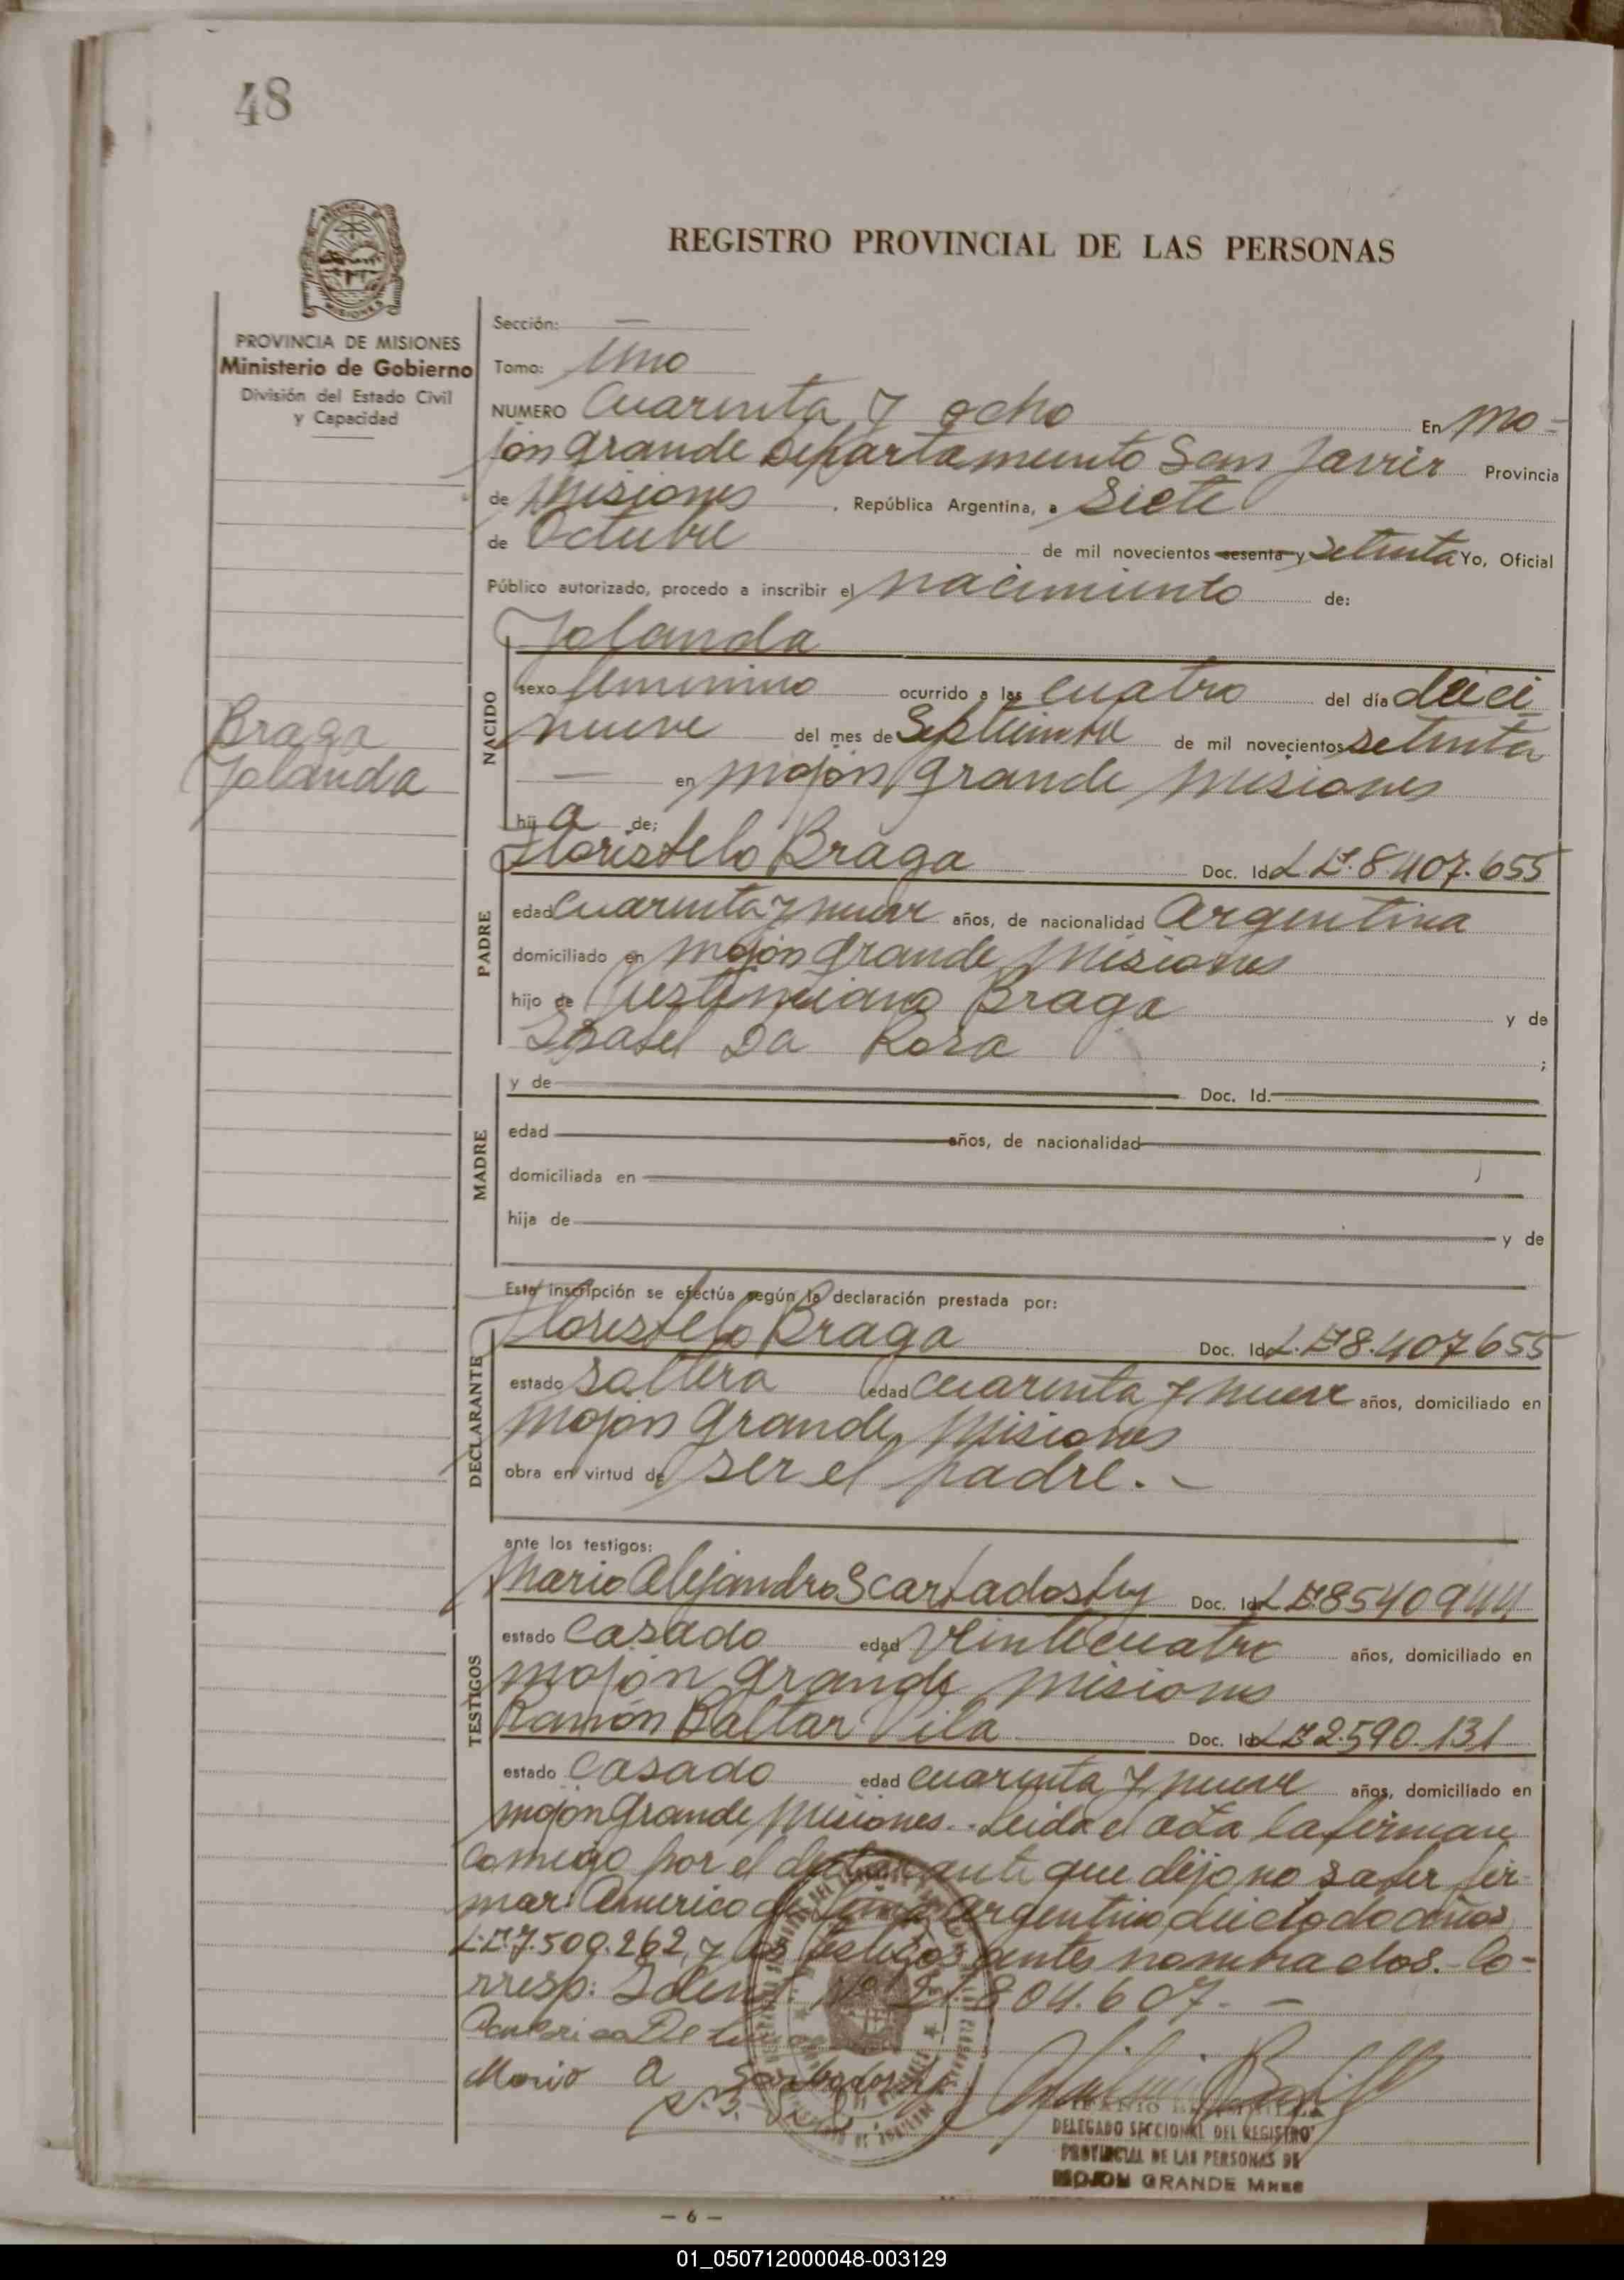 48
REGISTRO PROVINCIAL DE LAS PERSONAS
MISIONES
PROVINCIA DE MISIONES
Ministerio de Gobierno
División del Estado Civil
y Capacidad
Sección: —
Tomo: Uno
NUMERO Cuarenta y ocho En Mo-
jón Grande Departamento San Javier Provincia
de Misiones, República Argentina, a Siete
de Octubre de mil novecientos sesenta y Setenta Yo, Oficial
Público autorizado, procedo a inscribir el nacimiento de:
Braga
Jolanda
NACIDO
Jolanda
sexo femenino ocurrido a las cuatro del día dieci
nueve del mes de Septiembre de mil novecientos setenta
— en Mojón Grande Misiones
hij a de;
PADRE
Floristelo Braga Doc. Id. L.E. 8.407.655
edad cuarenta y nueve años, de nacionalidad Argentina
domiciliado en Mojón Grande, Misiones
hijo de Justiniano Braga y de
Isabel Da Rosa ;
MADRE
y de Doc. Id.
edad años, de nacionalidad
domiciliada en
hija de y de
Esta inscripción se efectúa según la declaración prestada por:
DECLARANTE
Floristelo Braga Doc. Id. L.E. 8.407655
estado soltero edad cuarenta y nueve años, domiciliado en
Mojón Grande, Misiones
obra en virtud de ser el padre. -
ante los testigos:
TESTIGOS
Mario Alejandro Doc. Id. L.E. 8540944
estado Casado edad Veinticuatro años, domiciliado en
Mojón Grande, Misiones
Ramón Baltar Vila Doc. Id. L.E. 2.590.131
estado Casado edad cuarenta y nueve años, domiciliado en
Mojón Grande, Misiones. - Leida el acta la firman
conmigo por el declarante que dijo no saber fir-
mar: Americo argentino, dos años
L.E. 7.509.262, y los testigos antes nombrados. - Co-
rresp: Ident. Nº 21.804.607. -
Mario A
DELEGADO SECCIONAL DEL REGISTRO
PROVINCIAL DE LAS PERSONAS DE
MOJON GRANDE Mnes
— 6 —
01_050712000048-003129